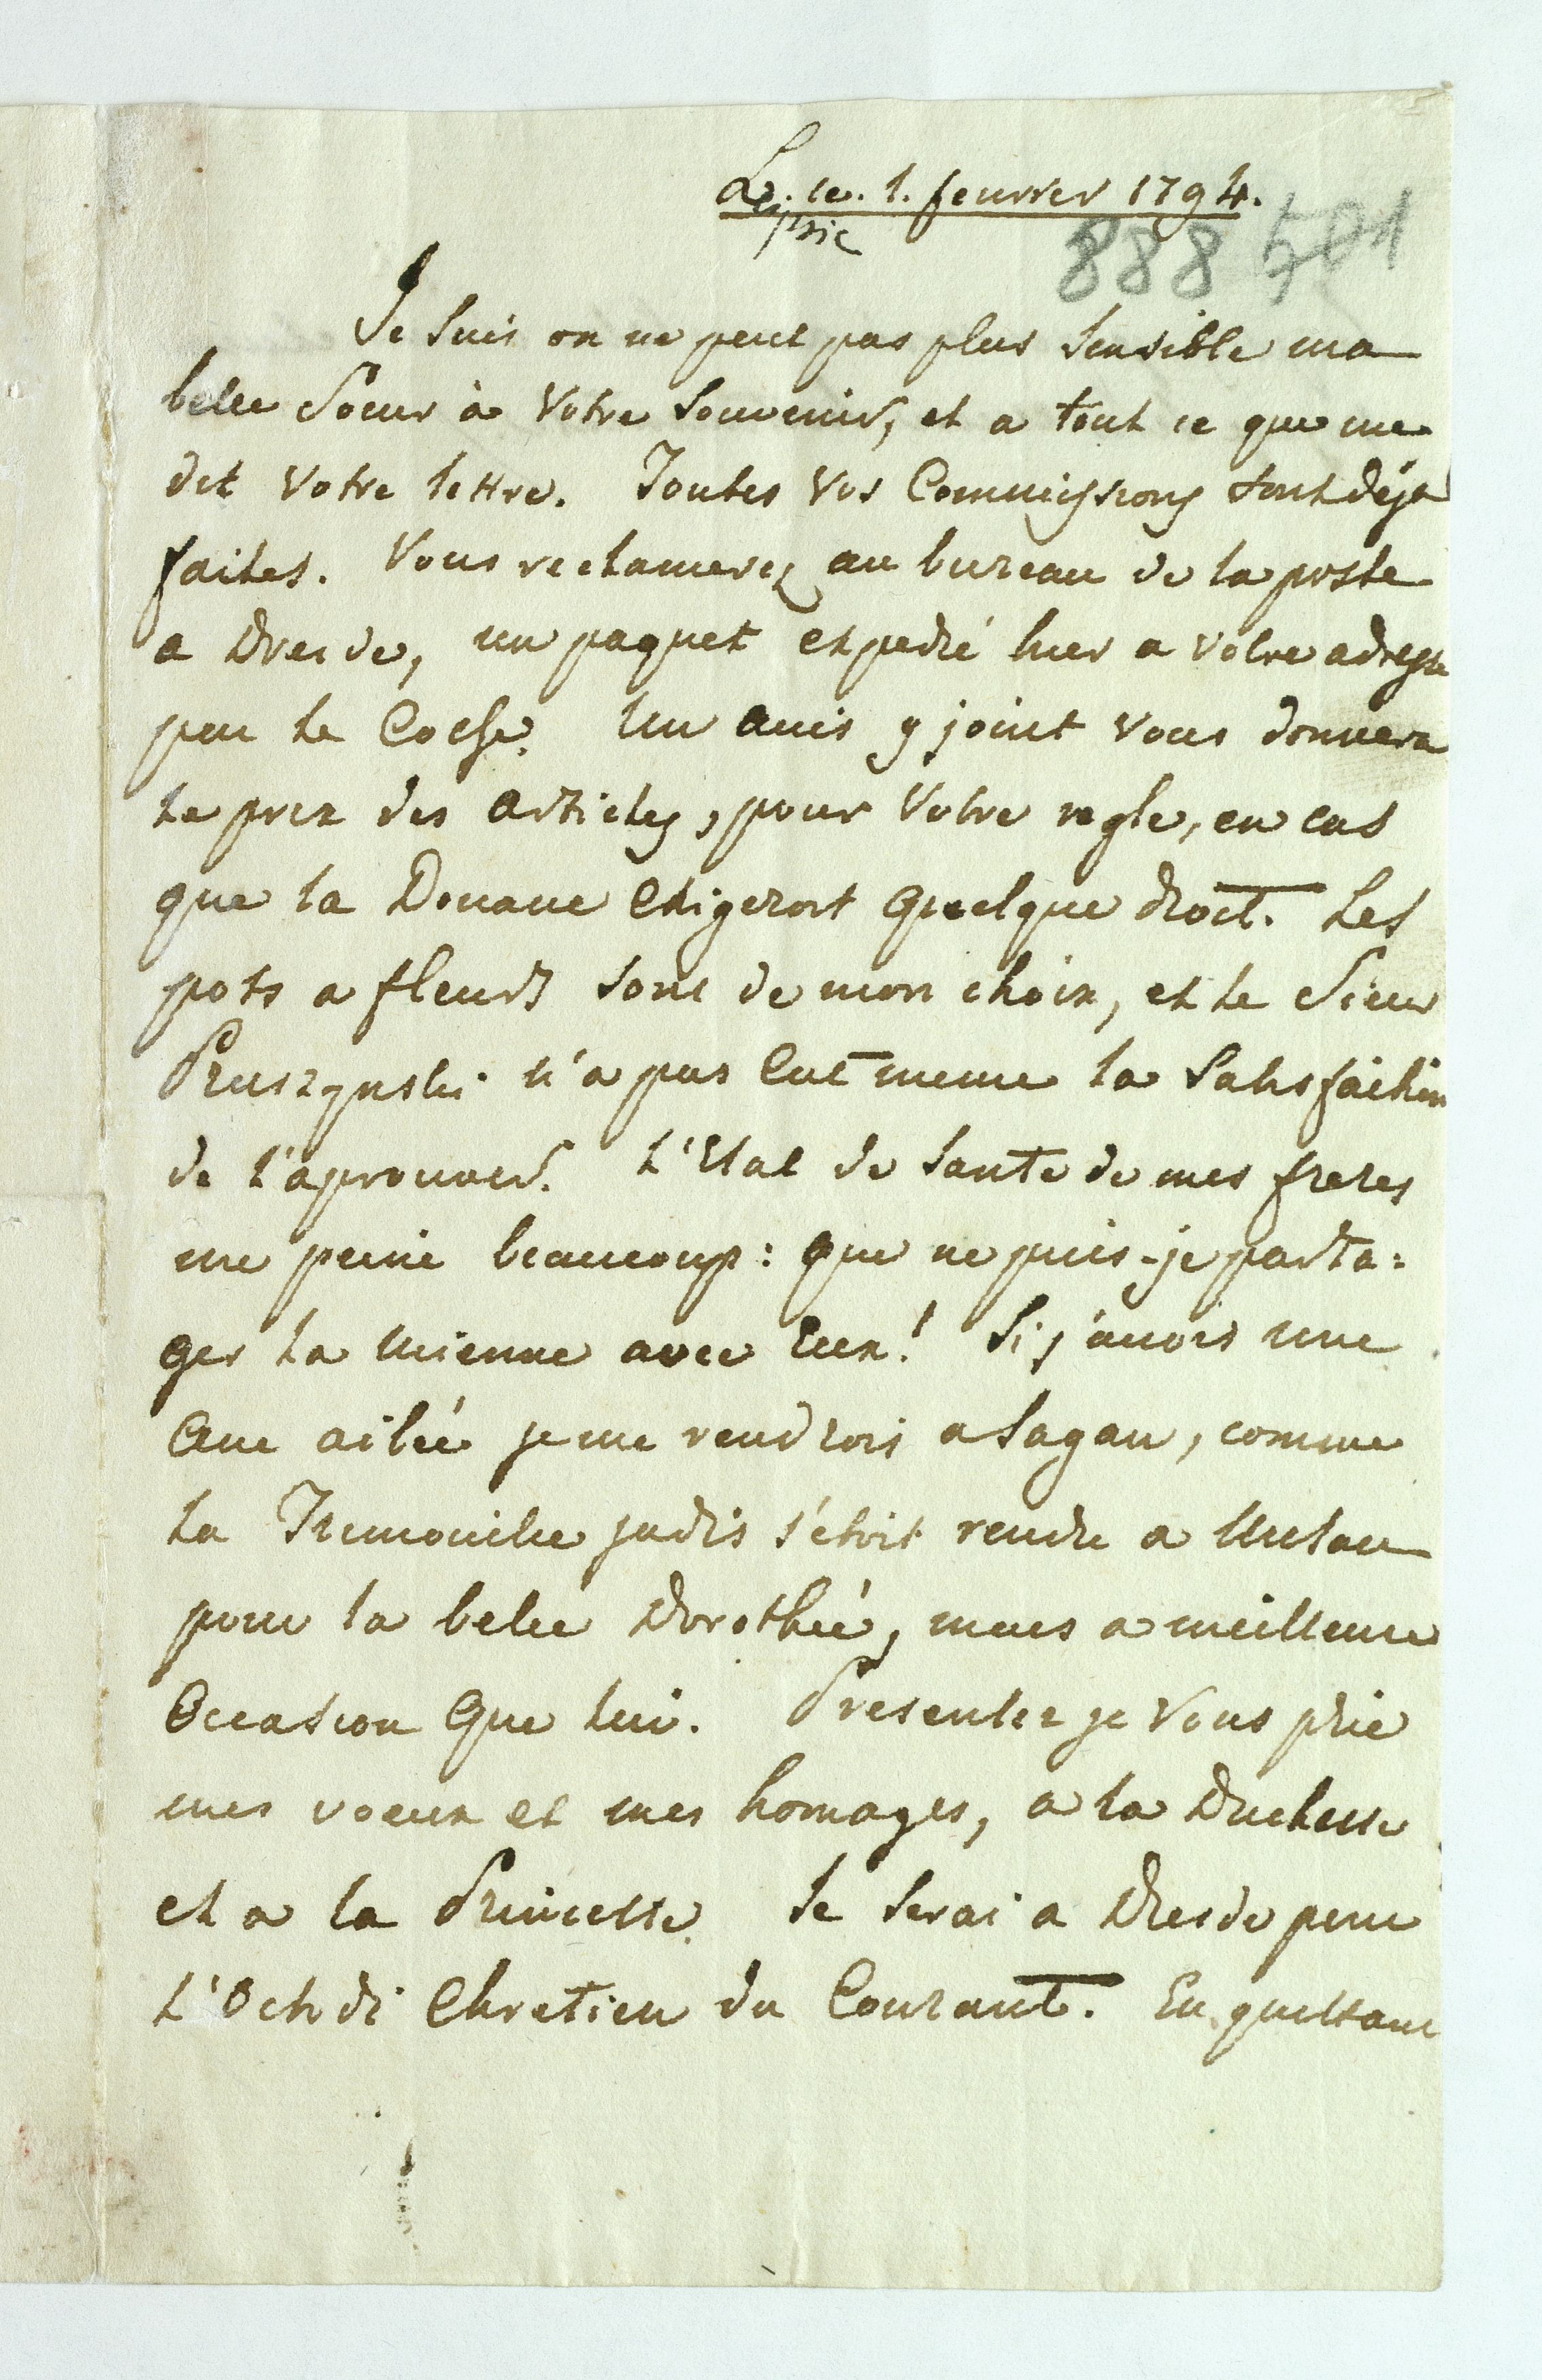 L. le. 1. fevrier 1794.
eipsic
888 501
Je suis on ne peut pas plus sensible ma
belle Soeur à Votre souvenir, et a tout ce que me
dit Votre lettre. Toutes Vos Commissions sont déja
faites. Vous reclamerez au bureau de la poste
a Dresde, un paquet expedié hier a Votre adresse
par le Coche. Un avis y joint vous donnera
le prix des articles, pour Votre regle, en cas
que la Douane exigeroit quelque droit. Les
pots a fleurs sont de mon choix, et le Sieur
Pruszynski n'a pas eut meme la satisfaction
de l'aprouver. L'Etat de santé de mes freres
me peine beaucoup: que ne puis-je parta:
ger la mienne avec Eux! Si j'avois une
Ane ailée je me rendrois a Sagan, comme
la Tremouille jadis s'étoit rendu a Milan
pour la belle Dorothée, mais a meilleure
Occasion que lui. Presentez je Vous prie
mes voeux et mes homages, a la Duchesse
et a la Princesse. Je serai a Dresde pour
L'Octidi Chretien du Courant. En quittant